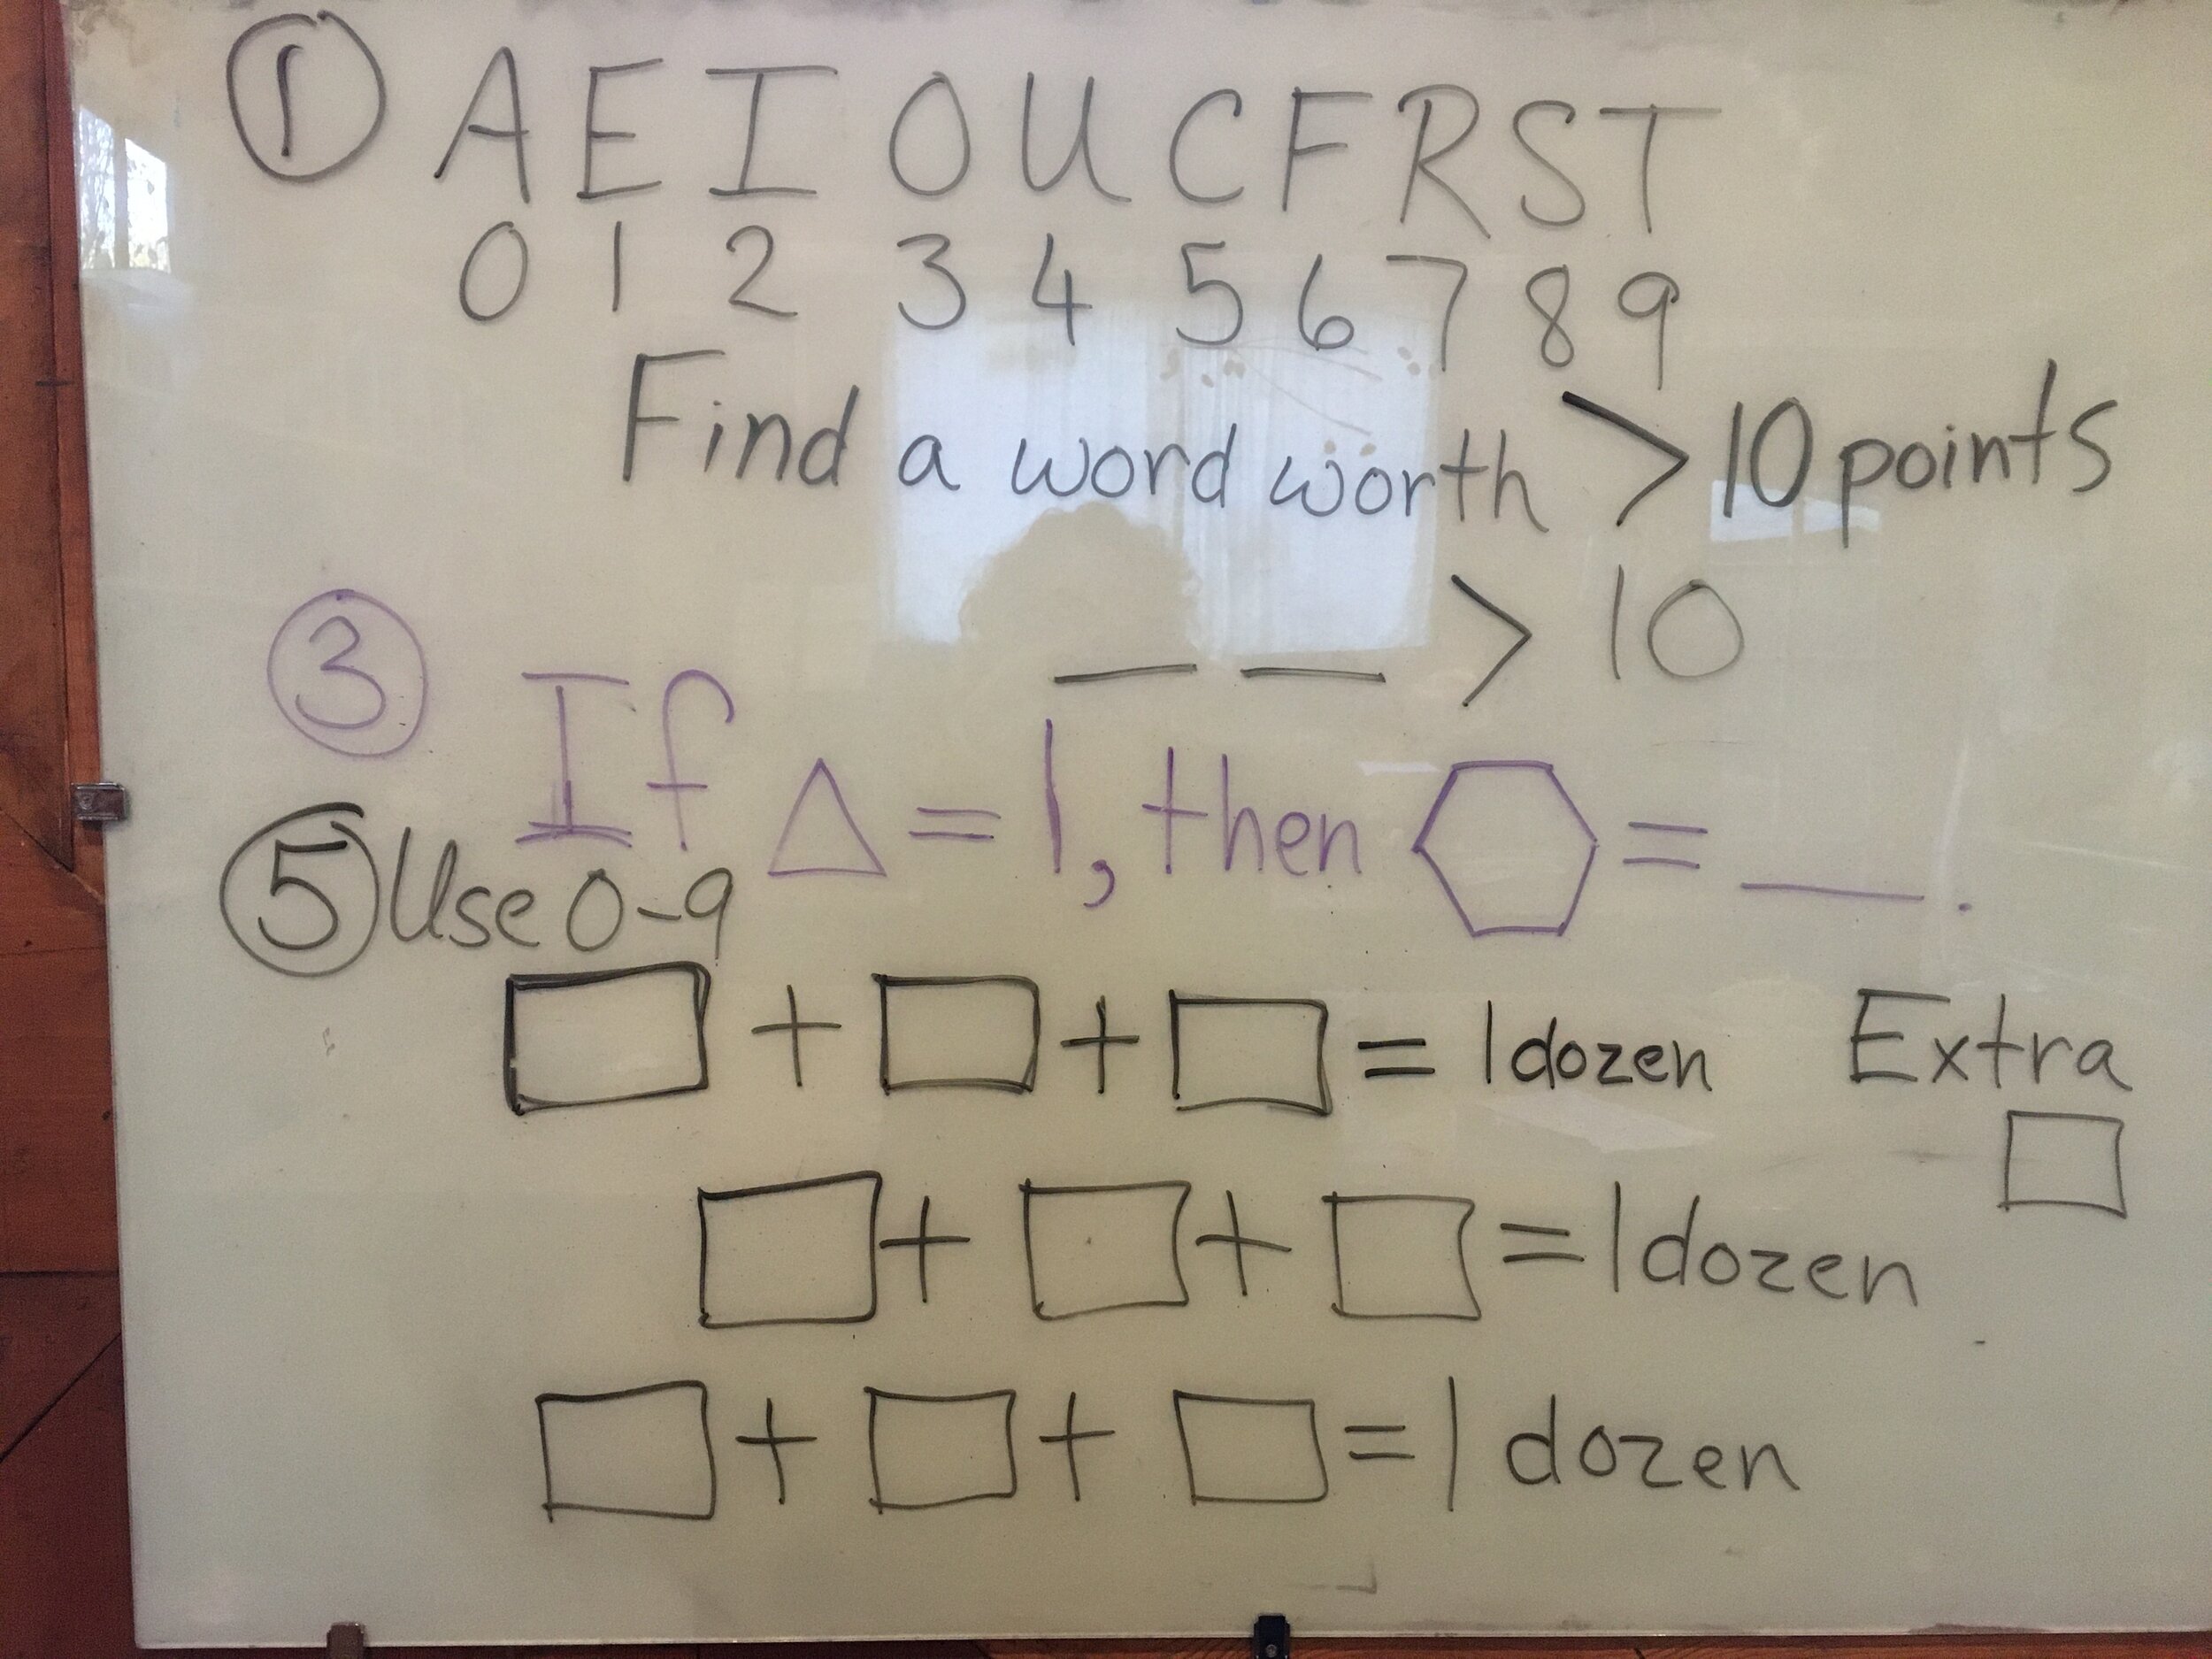 ① A E I O U C F R S T
0 1 2 3 4 5 6 7 8 9
Find a word worth > 10 points
__ __ > 10
③ If △ = 1, then ⬡ = __.
⑤ Use 0-9
□ + □ + □ = 1 dozen
Extra
□
□ + □ + □ = 1 dozen
□ + □ + □ = 1 dozen